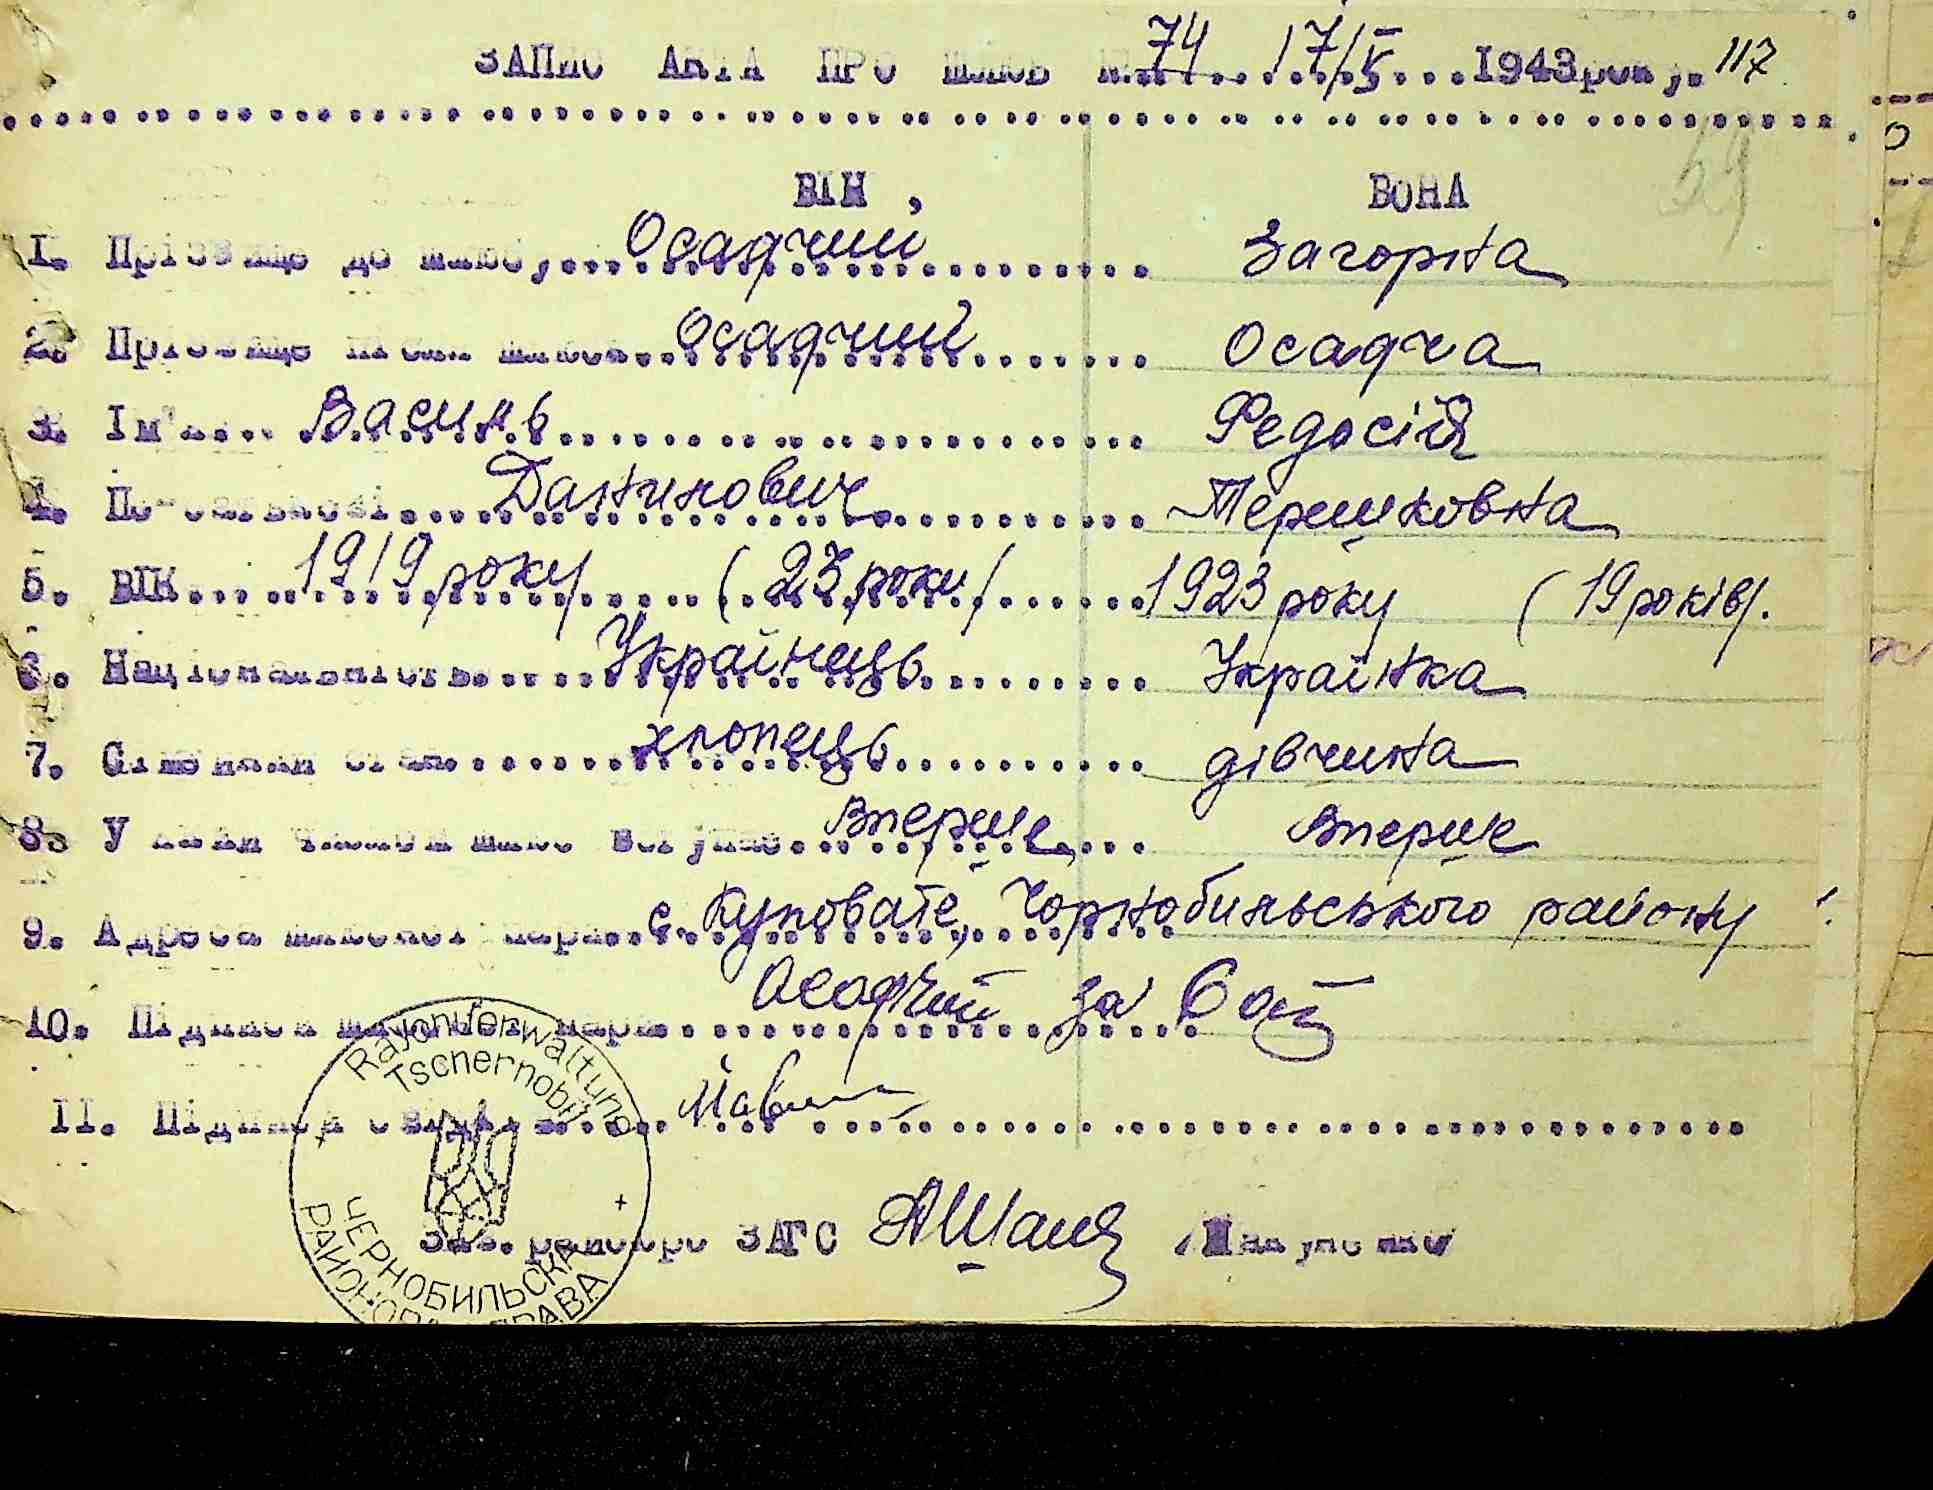 ЗАПИС АКТА ПРО ШЛЮБ №.74...17/V...1943року. 117
69
ВІН, ВОНА
1. Прізвище до шлюбу, Осадчий Загорна
2. Прізвище після шлюбу Осадчий Осадча
3. Ім'я Василь Федосія
4. По-батькові Данилович Терешковна
5. ВІК 1919 року (23 роки) 1923 року (19 років).
6. Національність Українець Українка
7. Сімейний стан хлопець дівчина
8. У який шлюб вступає Вперше Вперше
9. Адреса шлюбної пари с. Куповате, Чорнобильського району
10. Підписи шлюбної пари Осадчий за
11. Підписи свідків
Rayonverwaltung
Tschernobil
ЧЕРНОБИЛЬСКА
РАЙОНОВА УПРАВА
Зав. районбро ЗАГС